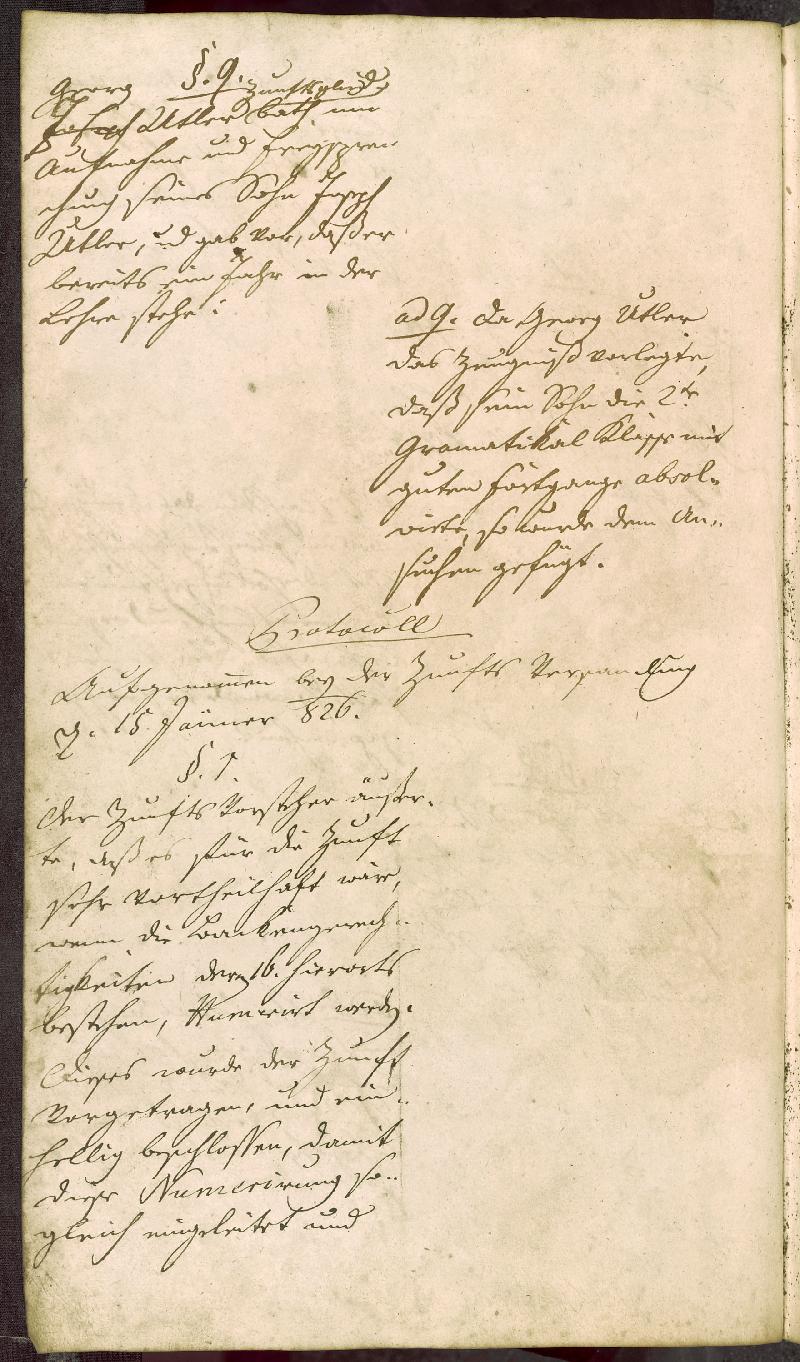 §. 9.
Georg Zunftsglied
Joseph Utler bath um
Aufnahme und Freyspre¬
chung seines Sohn Joseph
Utler, und gab vor, daß er
bereits ein Jahr in der
Lehre stehe:
ad 9. Da Georg Utler
das Zeugniß vorlegte,
daß sein Sohn die 2te
Gramatikal Klasse mit
guten Fortgange absol„
virte, so wurde dem An„
suchen gefügt.
Protocoll
Aufgenommen bey der Zunfts Versamlung
d. 15. Jänner 826.
§. 1.
Der Zunfts Vorsteher äußer„
te, daß es für die Zunft
sehr vortheilhaft wäre,
wenn die Backengerech„
tigkeiten deren 16. hierorts
bestehen, Numerirt werden.
Dieses wurde der Zunft
vorgetragen, und ein„
hellig beschlossen, damit
diese Numerirung so„
gleich eingeleitet und